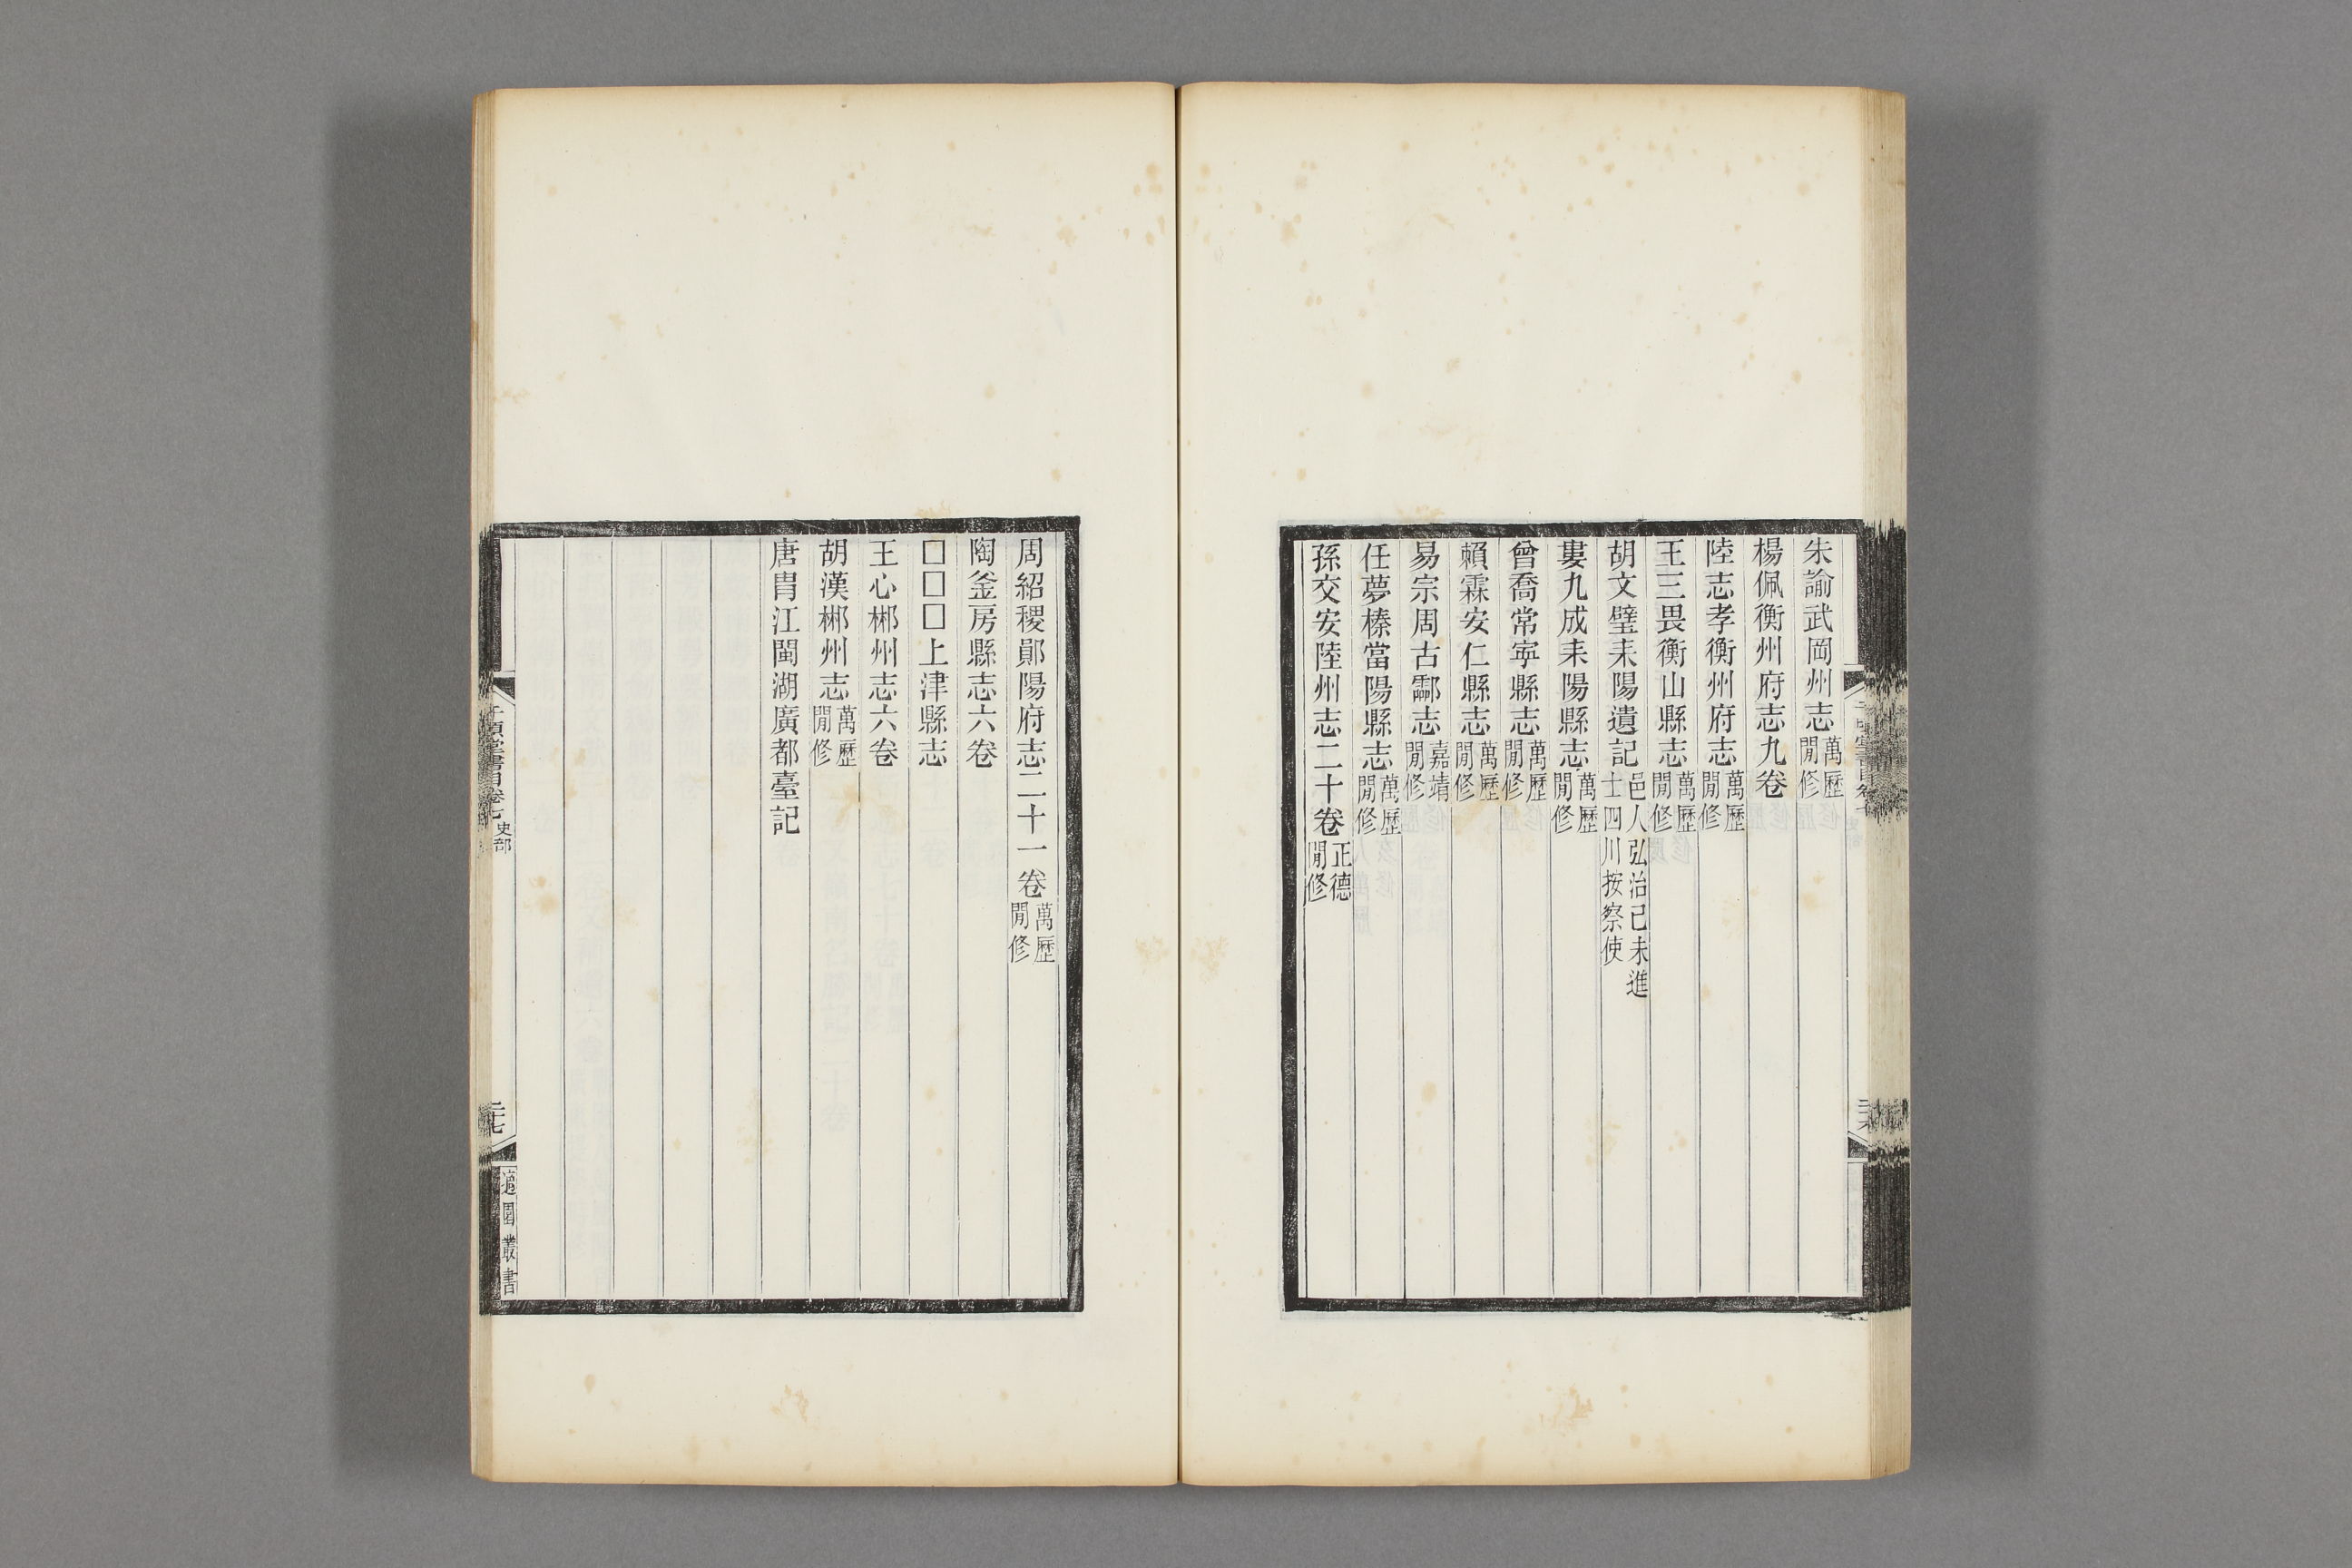 朱諭武岡州志萬歷閒修
楊佩衡州府志九卷
陸志孝衡州府志萬歷閒修
王三畏衡山縣志萬歷閒修
胡文璧耒陽遺記邑人弘治己未進士四川按察使
婁九成耒陽縣志萬歷閒修
曾喬常寧縣志萬歷閒修
賴霖安仁縣志萬歷閒修
易宗周古酃志嘉靖閒修
任夢榛當陽縣志萬歷閒修
孫交安陸州志二十卷正德閒修
周紹稷鄖陽府志二十一卷萬歷閒修
陶釜房縣志六卷
□□□上津縣志
王心郴州志六卷
胡漢郴州志萬歷閒修
唐胄江閩湖廣都臺記
千頃堂書目卷七 史部
二十七
適園叢書